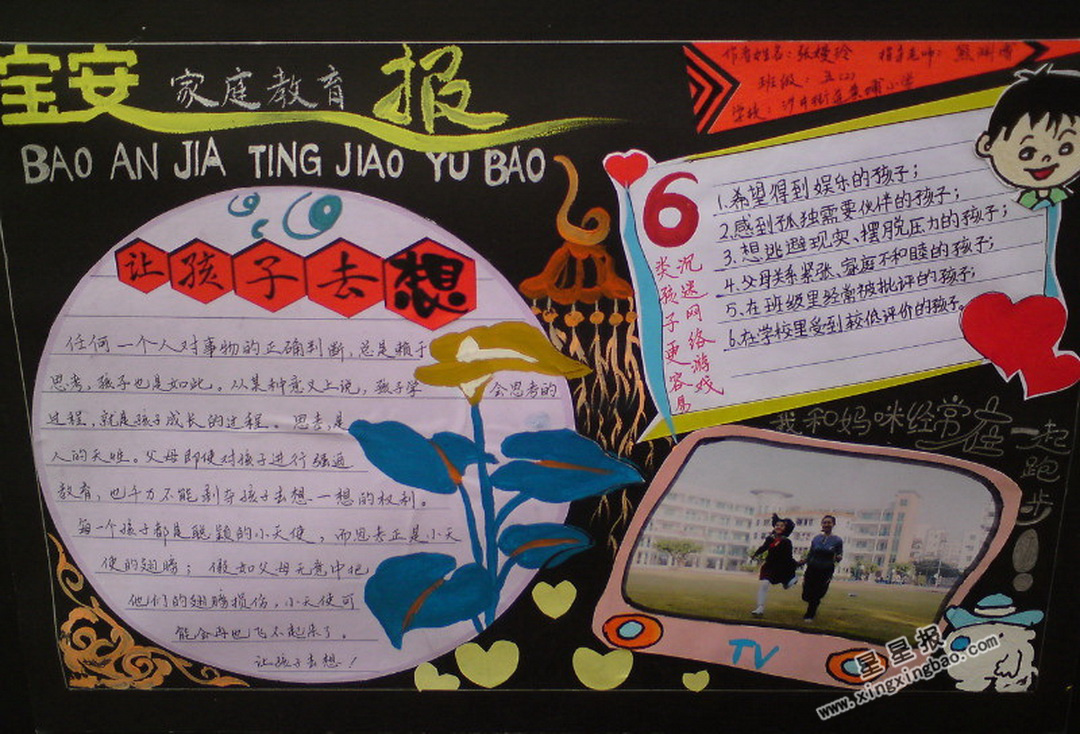 宝安家庭教育报
BAO AN JIA TING JIAO YU BAO
作者姓名：张嫚玲 指导老师：熊
班级：五(2)
学校：沙井街道 小学
让孩子去想
任何一个人对事物的正确判断，总是赖于
思考，孩子也是如此。从某种意义上说，孩子学会思考的
过程，就是孩子成长的过程。思考，是
人的天性。父母即使对孩子进行强逼
教育，也千万不能剥夺孩子去想一想的权利。
每一个孩子都是聪颖的小天使，而思考正是小天
使的翅膀；假如父母无意中把
他们的翅膀损伤，小天使可
能会再也飞不起来了。
让孩子去想！
6
类孩子更容易
沉迷网络游戏
1.希望得到娱乐的孩子；
2.感到孤独需要伙伴的孩子；
3.想逃避现实、摆脱压力的孩子；
4.父母关系紧张、家庭不和睦的孩子；
5.在班级里经常被批评的孩子；
6.在学校里受到较低评价的孩子。
我和妈咪经常在一起跑步！
TV
星星报
www.xingxingbao.com